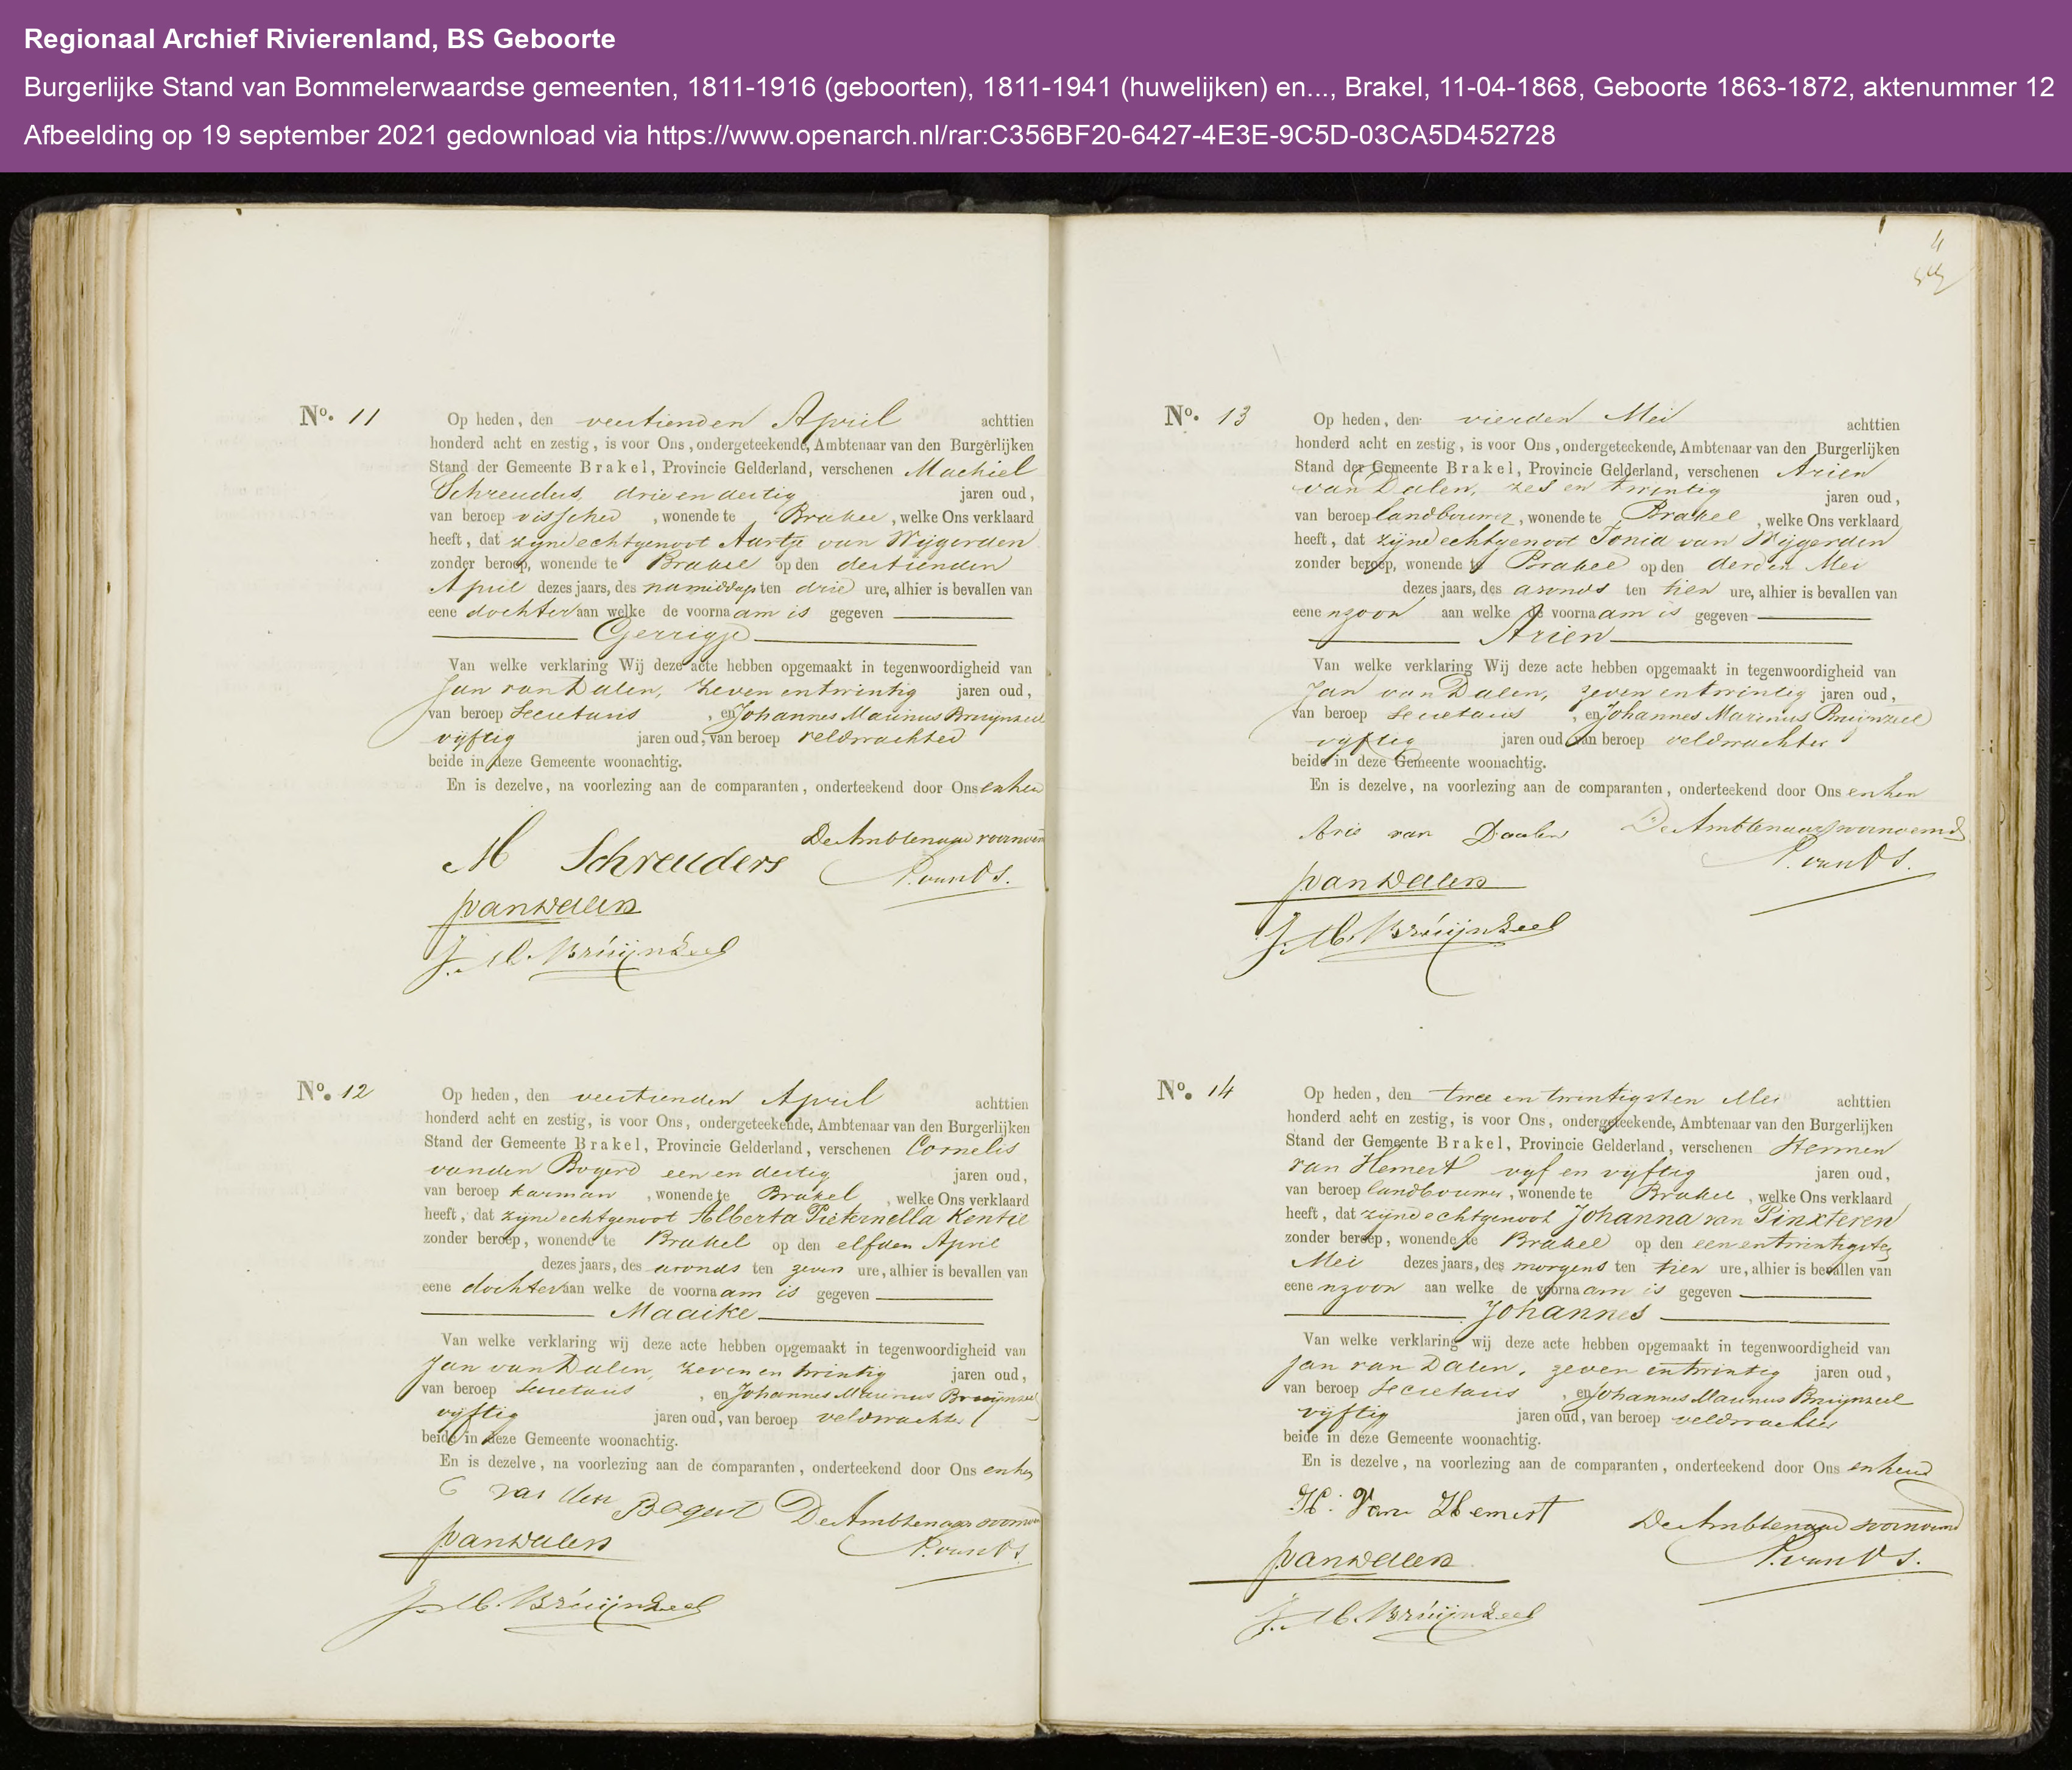 Regionaal Archief Rivierenland, BS Geboorte
Burgerlijke Stand van Bommelerwaardse gemeenten, 1811-1916 (geboorten), 1811-1941 (huwelijken) en..., Brakel, 11-04-1868, Geboorte 1863-1872, aktenummer 12
Afbeelding op 19 september 2021 gedownload via https://www.openarch.nl/rar:C356BF20-6427-4E3E-9C5D-03CA5D452728
No. 11
Op heden, den veertienden April achttien
honderd acht en zestig, is voor Ons, ondergeteekende, Ambtenaar van den Burgerlijken
Stand der Gemeente Brakel, Provincie Gelderland, verschenen Machiel
Schreuders, drie en dertig jaren oud,
van beroep visscher, wonende te Brakel, welke Ons verklaard
heeft, dat zijne echtgenoot Aartje van Wijgerden
zonder beroep, wonende te Brakel op den dertienden
April dezes jaars, des namiddags ten drie ure, alhier is bevallen van
eene dochter aan welke de voornaam is gegeven
Gerrigje
Van welke verklaring Wij deze acte hebben opgemaakt in tegenwoordigheid van
Jan van Dalen, zeven en twintig jaren oud,
van beroep Secretaris, en Johannes Marinus Bruijnzeel
vijftig jaren oud, van beroep veldwachter
beide in deze Gemeente woonachtig.
En is dezelve, na voorlezing aan de comparanten, onderteekend door Ons en hen
De Ambtenaar voornoemd
M Schreuders
P. van Os.
JvanDalen
J. M. Bruijnzeel
No. 12
Op heden, den veertienden April achttien
honderd acht en zestig, is voor Ons, ondergeteekende, Ambtenaar van den Burgerlijken
Stand der Gemeente Brakel, Provincie Gelderland, verschenen Cornelis
van den Bogerd een en dertig jaren oud,
van beroep karman, wonende te Brakel, welke Ons verklaard
heeft, dat zijne echtgenoot Alberta Pieternella Kentie
zonder beroep, wonende te Brakel op den elfden April
dezes jaars, des avonds ten zeven ure, alhier is bevallen van
eene dochter aan welke de voornaam is gegeven
Maaike
Van welke verklaring wij deze acte hebben opgemaakt in tegenwoordigheid van
Jan van Dalen, zeven en twintig jaren oud,
van beroep Secretaris, en Johannes Marinus Bruijnzeel
vijftig jaren oud, van beroep veldwachter
beide in deze Gemeente woonachtig.
En is dezelve, na voorlezing aan de comparanten, onderteekend door Ons en hen
C van den Bogert De Ambtenaar voornoemd
JvanDalen P. van Os.
J. M. Bruijnzeel
4
No. 13
Op heden, den vierden Mei achttien
honderd acht en zestig, is voor Ons, ondergeteekende, Ambtenaar van den Burgerlijken
Stand der Gemeente Brakel, Provincie Gelderland, verschenen Arien
van Dalen, zes en twintig jaren oud,
van beroep landbouwer, wonende te Brakel, welke Ons verklaard
heeft, dat zijne echtgenoot Tonia van Wijgerden
zonder beroep, wonende te Brakel op den derden Mei
dezes jaars, des avonds ten tien ure, alhier is bevallen van
eenen zoon aan welke de voornaam is gegeven
Arien
Van welke verklaring Wij deze acte hebben opgemaakt in tegenwoordigheid van
Jan van Dalen, zeven en twintig jaren oud,
van beroep Secretaris, en Johannes Marinus Bruijnzeel
vijftig jaren oud van beroep veldwachter
beide in deze Gemeente woonachtig.
En is dezelve, na voorlezing aan de comparanten, onderteekend door Ons en hen
Arie van Daalen De Ambtenaar voornoemd
P. van Os.
JvanDalen
J. M. Bruijnzeel
No. 14
Op heden, den twee en twintigsten Mei achttien
honderd acht en zestig, is voor Ons, ondergeteekende, Ambtenaar van den Burgerlijken
Stand der Gemeente Brakel, Provincie Gelderland, verschenen Hermen
van Hemert vijf en vijftig jaren oud,
van beroep landbouwer, wonende te Brakel, welke Ons verklaard
heeft, dat zijne echtgenoot Johanna van Pinxteren
zonder beroep, wonende te Brakel op den een en twintigsten
Mei dezes jaars, des morgens ten tien ure, alhier is bevallen van
eenen zoon aan welke de voornaam is gegeven
Johannes
Van welke verklaring wij deze acte hebben opgemaakt in tegenwoordigheid van
Jan van Dalen, zeven en twintig jaren oud,
van beroep Secretaris, en Johannes Marinus Bruijnzeel
vijftig jaren oud, van beroep veldwachter
beide in deze Gemeente woonachtig.
En is dezelve, na voorlezing aan de comparanten, onderteekend door Ons en hen
H. Van Hemert De Ambtenaar voornoemd
JvanDalen P. van Os.
J. M. Bruijnzeel